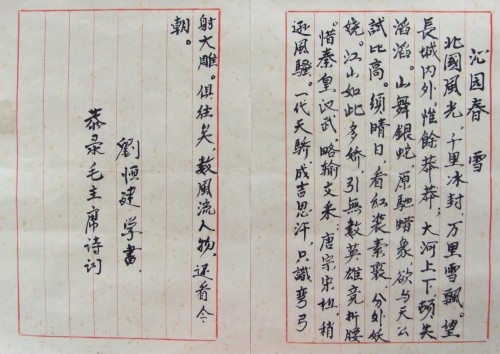 沁园春 雪
北國風光，千里冰封，万里雪飄。望
長城内外，惟餘莽莽；大河上下，頓失
滔滔。山舞銀蛇，原馳蜡象，欲与天公
試比高。须晴日，看红装素裹，分外妖
娆。江山如此多娇，引無數英雄竞折腰
。惜秦皇汉武，略输文采，唐宗宋祖，稍
逊風騷。一代天驕，成吉思汗，只識彎弓
射大雕。俱往矣，數風流人物，还看今
朝。
劉恒建学書
恭录毛主席诗词